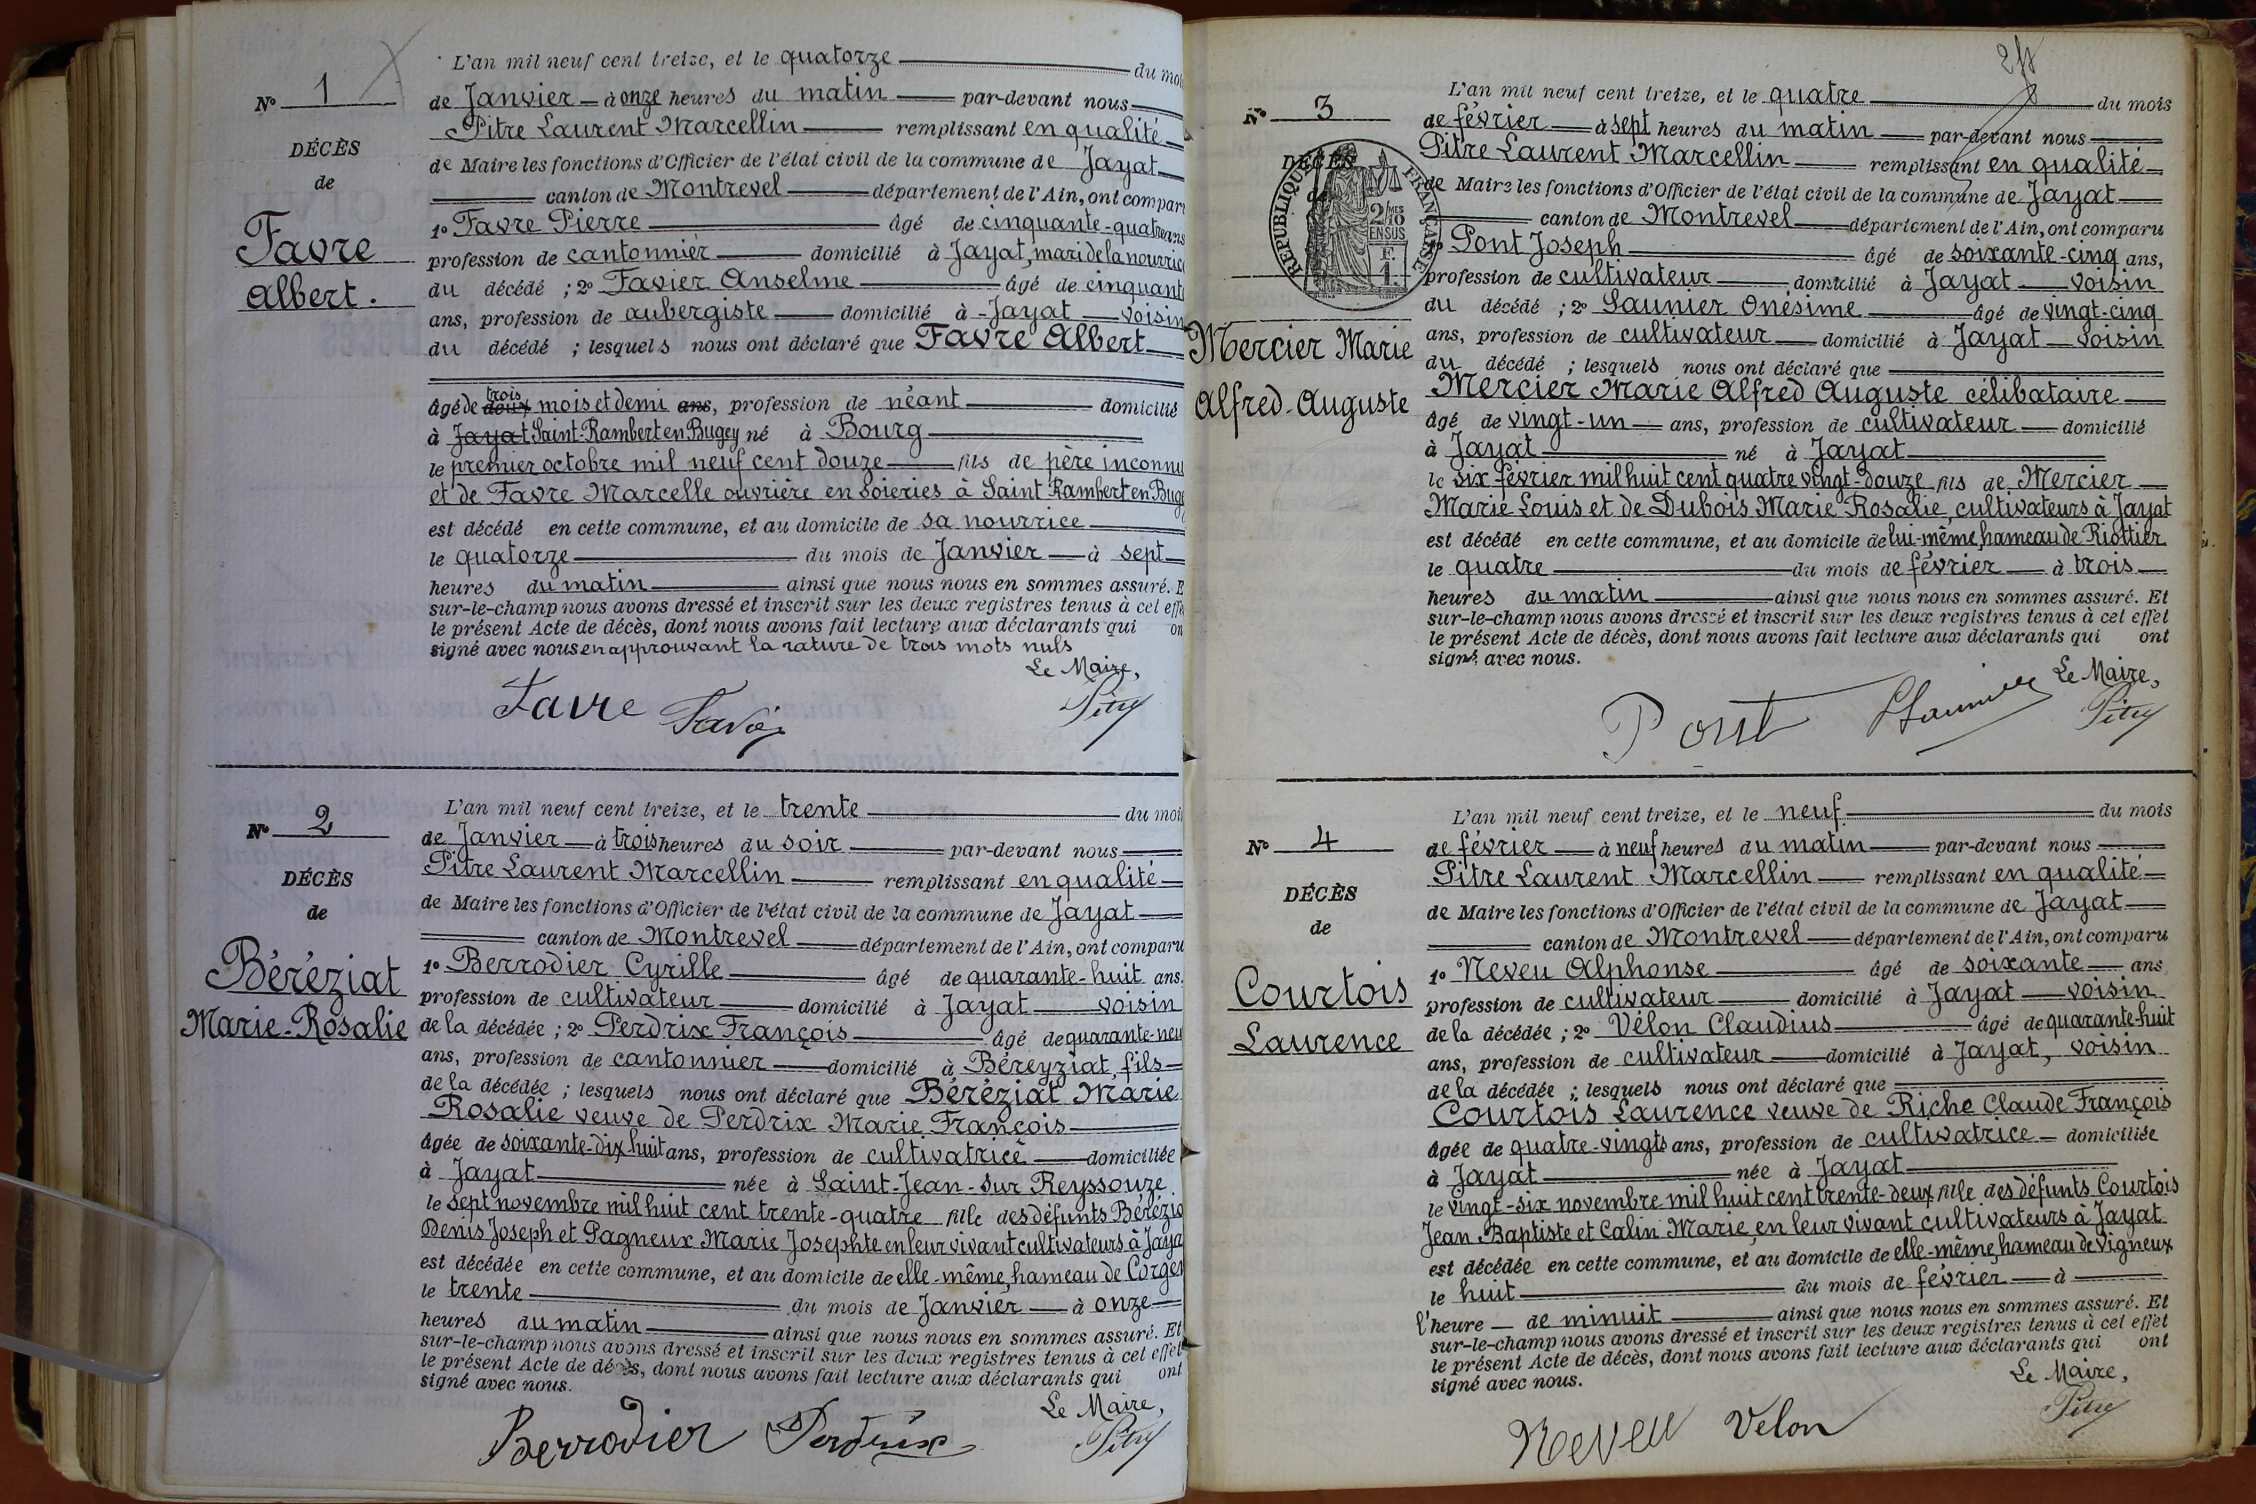 N° 1
DÉCÈS
de
Favre
Albert.
L'an mil neuf cent treize, et le quatorze du moi
de Janvier à onze heures du matin par-devant nous
Pitre Laurent Marcellin remplissant en qualité
de Maire les fonctions d'Officier de l'état civil de la commune de Jayat
canton de Montrevel département de l'Ain, ont compar
1° Favre Pierre âgé de cinquante-quatre ans
profession de cantonnier domicilié à Jayat, mari de la nourrice
du décédé ; 2° Favier Anselme âgé de cinquant
ans, profession de aubergiste domicilié à Jayat voisin
du décédé ; lesquels nous ont déclaré que Favre Albert
trois
âgé de deux mois et demi ans, profession de néant domicilié
à Jayat Saint-Rambert en Bugey né à Bourg
le premier octobre mil neuf cent douze fils de père inconnu
et de Favre Marcelle ouvrière en soieries à Saint-Rambert en Buge
est décédé en cette commune, et au domicile de sa nourrice
le quatorze du mois de Janvier à sept
heures du matin ainsi que nous nous en sommes assuré. E
sur-le-champ nous avons dressé et inscrit sur les deux registres tenus à cet effe
le présent Acte de décès, dont nous avons fait lecture aux déclarants qui on
signé avec nous en approuvant la rature de trois mots nuls
Le Maire,
Favre Pitre
N° 2
DÉCÈS
de
Béréziat
Marie-Rosalie
L'an mil neuf cent treize, et le trente du moi
de Janvier à trois heures du soir par-devant nous
Pitre Laurent Marcellin remplissant en qualité
de Maire les fonctions d'Officier de l'état civil de la commune de Jayat
canton de Montrevel département de l'Ain, ont comparu
1° Berrodier Cyrille âgé de quarante-huit ans.
profession de cultivateur domicilié à Jayat voisin
de la décédée ; 2° Perdrix François âgé de quarante-neu
ans, profession de cantonnier domicilié à Béreyziat, fils
de la décédée ; lesquels nous ont déclaré que Béréziat Marie
Rosalie veuve de Perdrix Marie François
âgée de soixante-dix huit ans, profession de cultivatrice domiciliée
à Jayat née à Saint-Jean-sur Reyssouze
le sept novembre mil huit cent trente-quatre fille des défunts Bérézia
Denis Joseph et Pagneux Marie Josephte en leur vivant cultivateurs à Jaya
est décédée en cette commune, et au domicile de elle-même, hameau de Corgen
le trente du mois de Janvier à onze
heures du matin ainsi que nous nous en sommes assuré. Et
sur-le-champ nous avons dressé et inscrit sur les deux registres tenus à cet effet
le présent Acte de décès, dont nous avons fait lecture aux déclarants qui ont
signé avec nous.
Le Maire,
Berrodier Perdrix Pitre
N° 3
DÉCÈS
de
RÉPUBLIQUE FRANÇAISE
2/10 MES
EN SUS
F.
1.
Mercier Marie
Alfred-Auguste
L'an mil neuf cent treize, et le quatre du mois
de février à sept heures du matin par-devant nous
Pitre Laurent Marcellin remplissant en qualité
de Maire les fonctions d'Officier de l'état civil de la commune de Jayat
canton de Montrevel département de l'Ain, ont comparu
1° Pont Joseph âgé de soixante-cinq ans,
profession de cultivateur domicilié à Jayat voisin
du décédé ; 2° Saunier Onésime âgé de vingt-cinq
ans, profession de cultivateur domicilié à Jayat voisin
du décédé ; lesquels nous ont déclaré que
Mercier Marie Alfred Auguste célibataire
âgé de vingt-un ans, profession de cultivateur domicilié
à Jayat né à Jayat
le six février mil huit cent quatre vingt-douze fils de Mercier
Marie Louis et de Dubois Marie Rosalie, cultivateurs à Jayat
est décédé en cette commune, et au domicile de lui-même, hameau de Riottier
le quatre du mois de février à trois
heures du matin ainsi que nous nous en sommes assuré. Et
sur-le-champ nous avons dressé et inscrit sur les deux registres tenus à cet effet
le présent Acte de décès, dont nous avons fait lecture aux déclarants qui ont
signé avec nous.
Le Maire,
Pont Saunier Pitre
N° 4
DÉCÈS
de
Courtois
Laurence
L'an mil neuf cent treize, et le neuf du mois
de février à neuf heures du matin par-devant nous
Pitre Laurent Marcellin remplissant en qualité
de Maire les fonctions d'Officier de l'état civil de la commune de Jayat
canton de Montrevel département de l'Ain, ont comparu
1° Neveu Alphonse âgé de soixante ans
profession de cultivateur domicilié à Jayat voisin
de la décédée ; 2° Vélon Claudius âgé de quarante-huit
ans, profession de cultivateur domicilié à Jayat, voisin
de la décédée ; lesquels nous ont déclaré que
Courtois Laurence veuve de Riche Claude François
âgée de quatre-vingts ans, profession de cultivatrice domiciliée
à Jayat née à Jayat
le vingt-six novembre mil huit cent trente-deux fille des défunts Courtois
Jean Baptiste et Calin Marie, en leur vivant cultivateurs à Jayat
est décédée en cette commune, et au domicile de elle-même, hameau de Vigneux
le huit du mois de février à
l'heure de minuit ainsi que nous nous en sommes assuré. Et
sur-le-champ nous avons dressé et inscrit sur les deux registres tenus à cet effet
le présent Acte de décès, dont nous avons fait lecture aux déclarants qui ont
signé avec nous.
Le Maire,
Neveu Velon Pitre